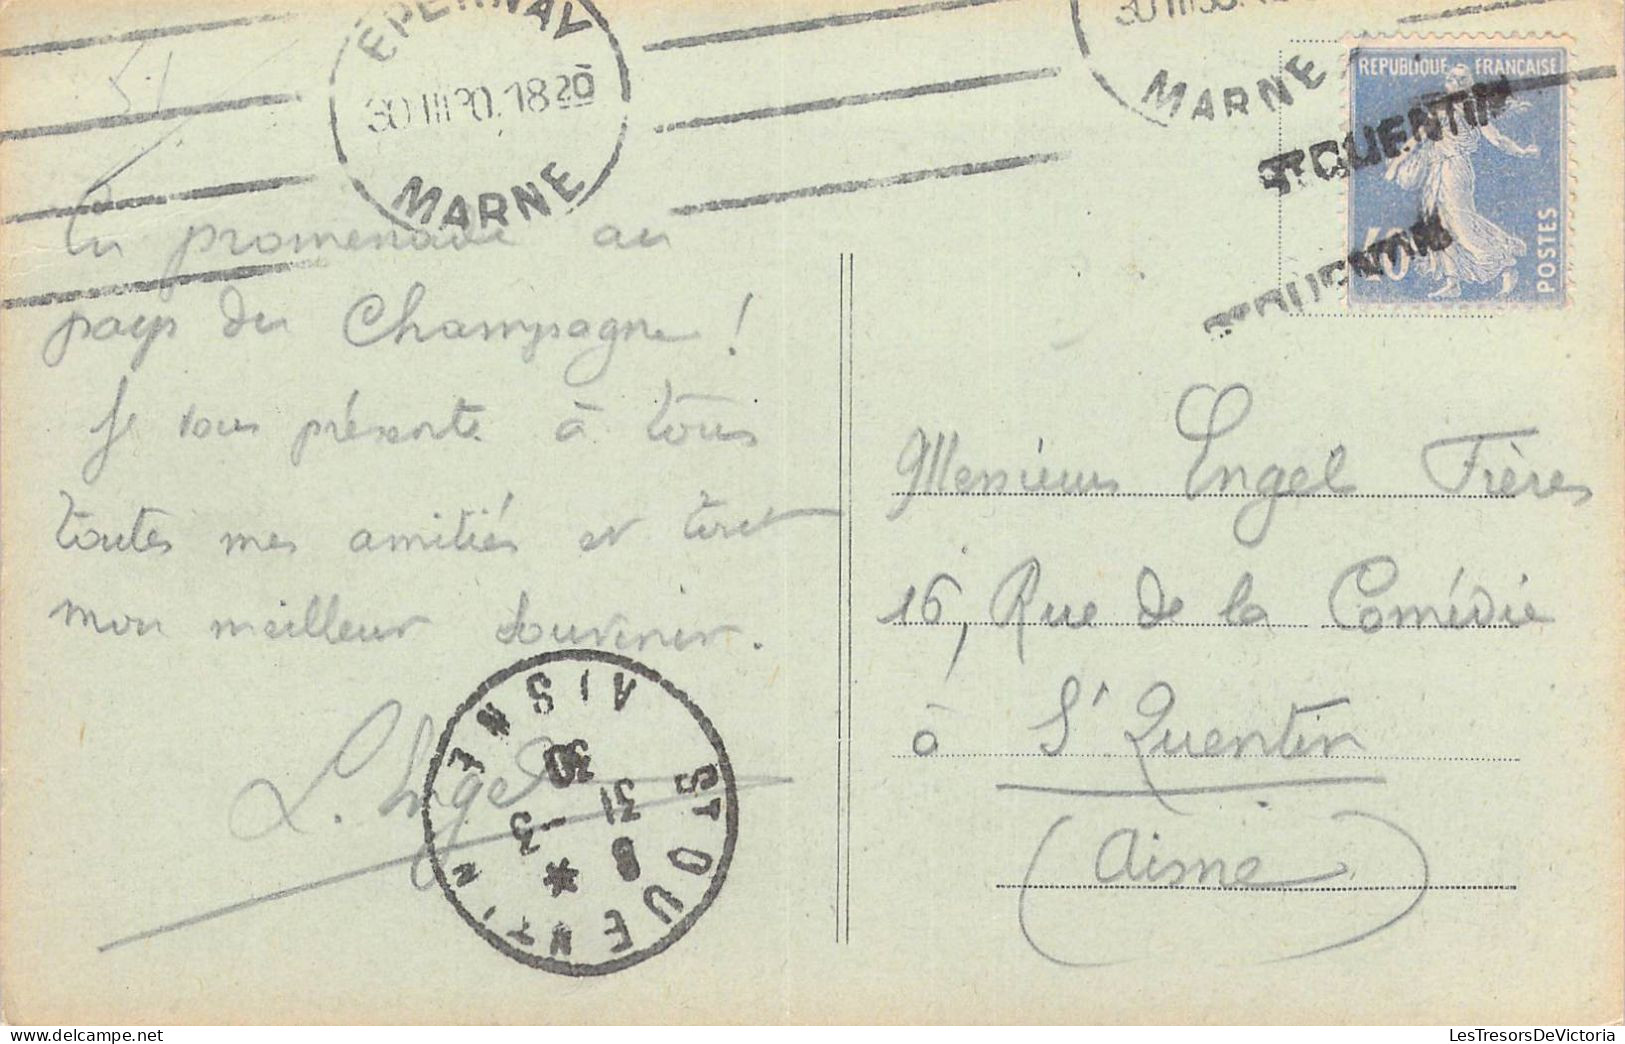 ÉPERNAY
30 III 30. 18 20
MARNE
MARNE
REPUBLIQUE FRANÇAISE
40
POSTES
ST QUENTIN
ST QUENTIN
51
En promenade au
pays du Champagne !
Je vous présente à tous
toutes mes amitiés et tout
mon meilleur souvenir.
L. Engel
ST QUENTIN
AISNE
8
31
3
30
Messieurs Engel Frères
16, Rue de la Comédie
à St Quentin
(Aisne)
LesTresorsDeVictoria